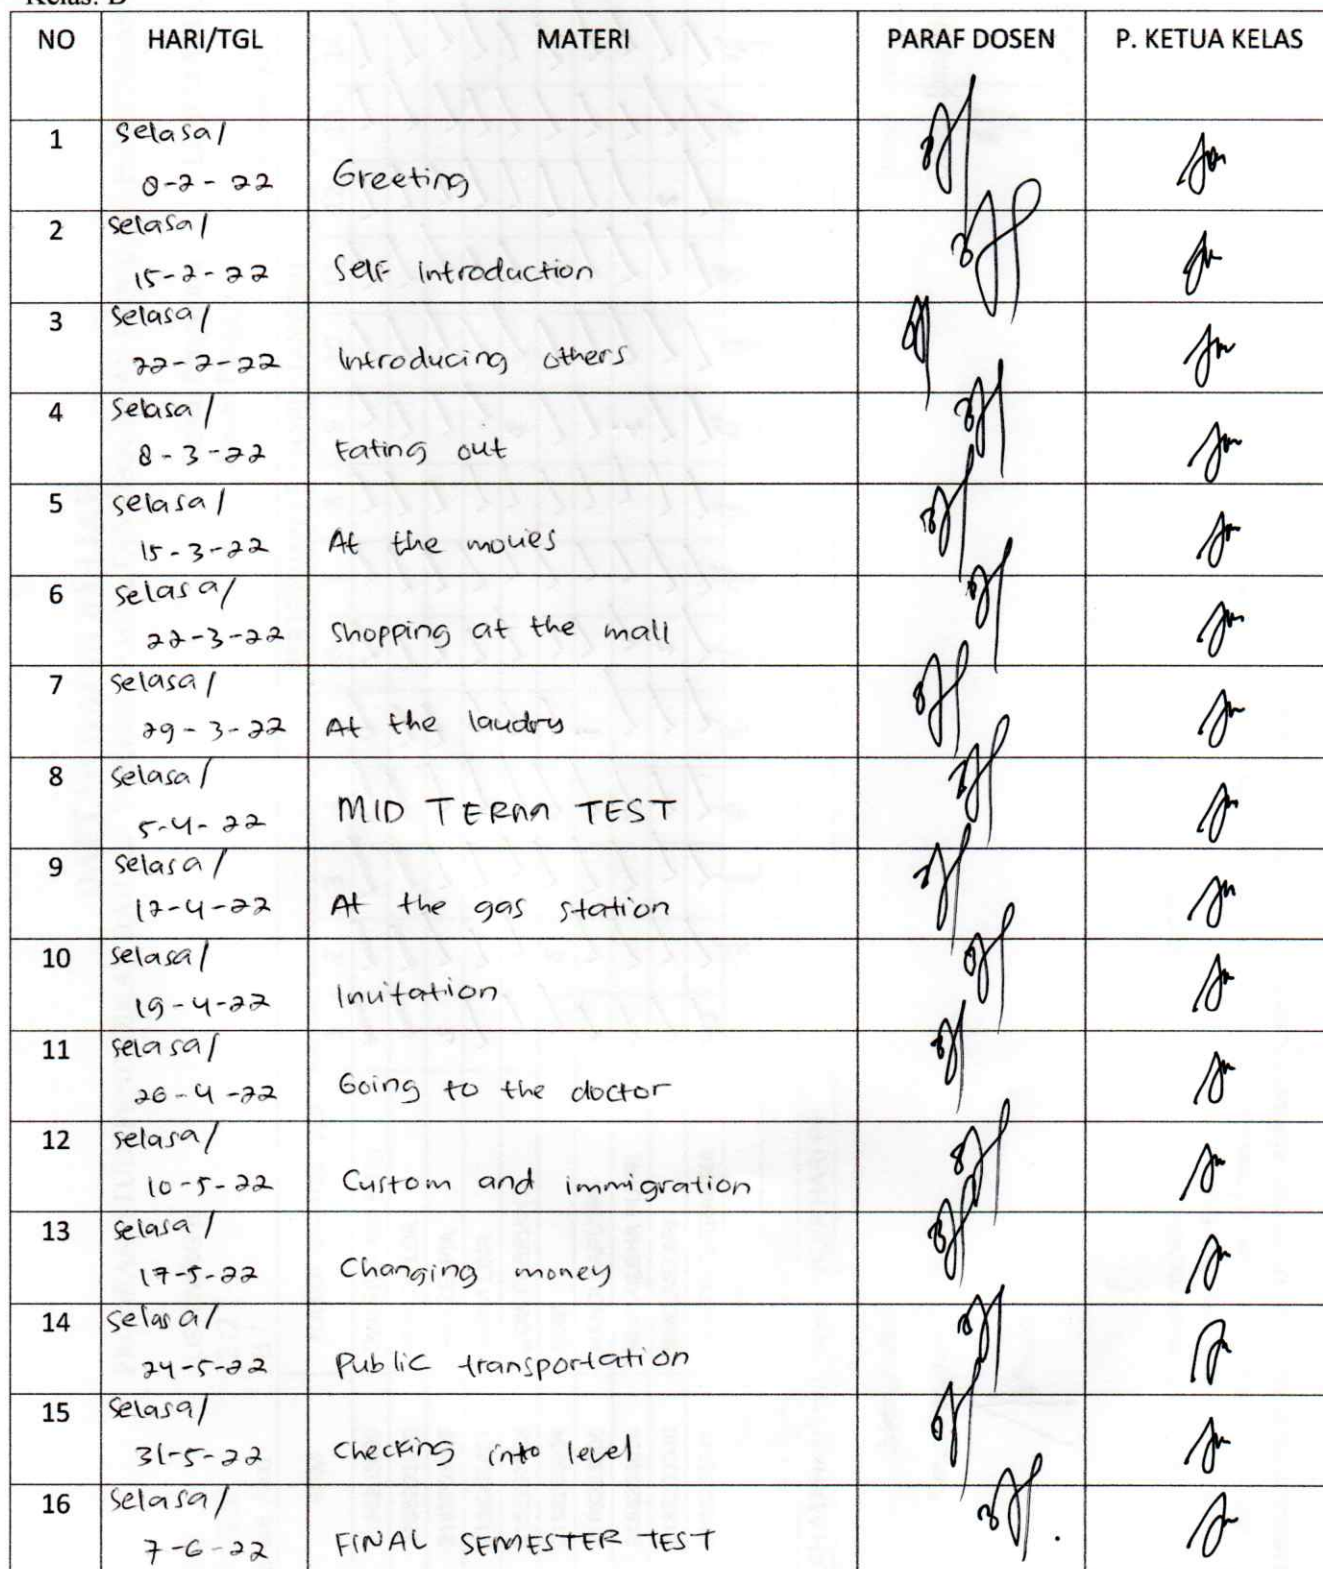 Kelas: B
NO HARI/TGL MATERI PARAF DOSEN P. KETUA KELAS
1 Selasa/
8-2-22 Greeting
2 Selasa/
15-2-22 Self introduction
3 Selasa/
22-2-22 Introducing others
4 Selasa/
8-3-22 Eating out
5 Selasa/
15-3-22 At the movies
6 Selasa/
22-3-22 Shopping at the mall
7 Selasa/
29-3-22 At the laudry
8 Selasa/
5-4-22 MID TERM TEST
9 Selasa/
12-4-22 At the gas station
10 Selasa/
19-4-22 Invitation
11 Selasa/
26-4-22 Going to the doctor
12 Selasa/
10-5-22 Custom and immigration
13 Selasa/
17-5-22 Changing money
14 Selasa/
24-5-22 Public transportation
15 Selasa/
31-5-22 Checking into level
16 Selasa/
7-6-22 FINAL SEMESTER TEST